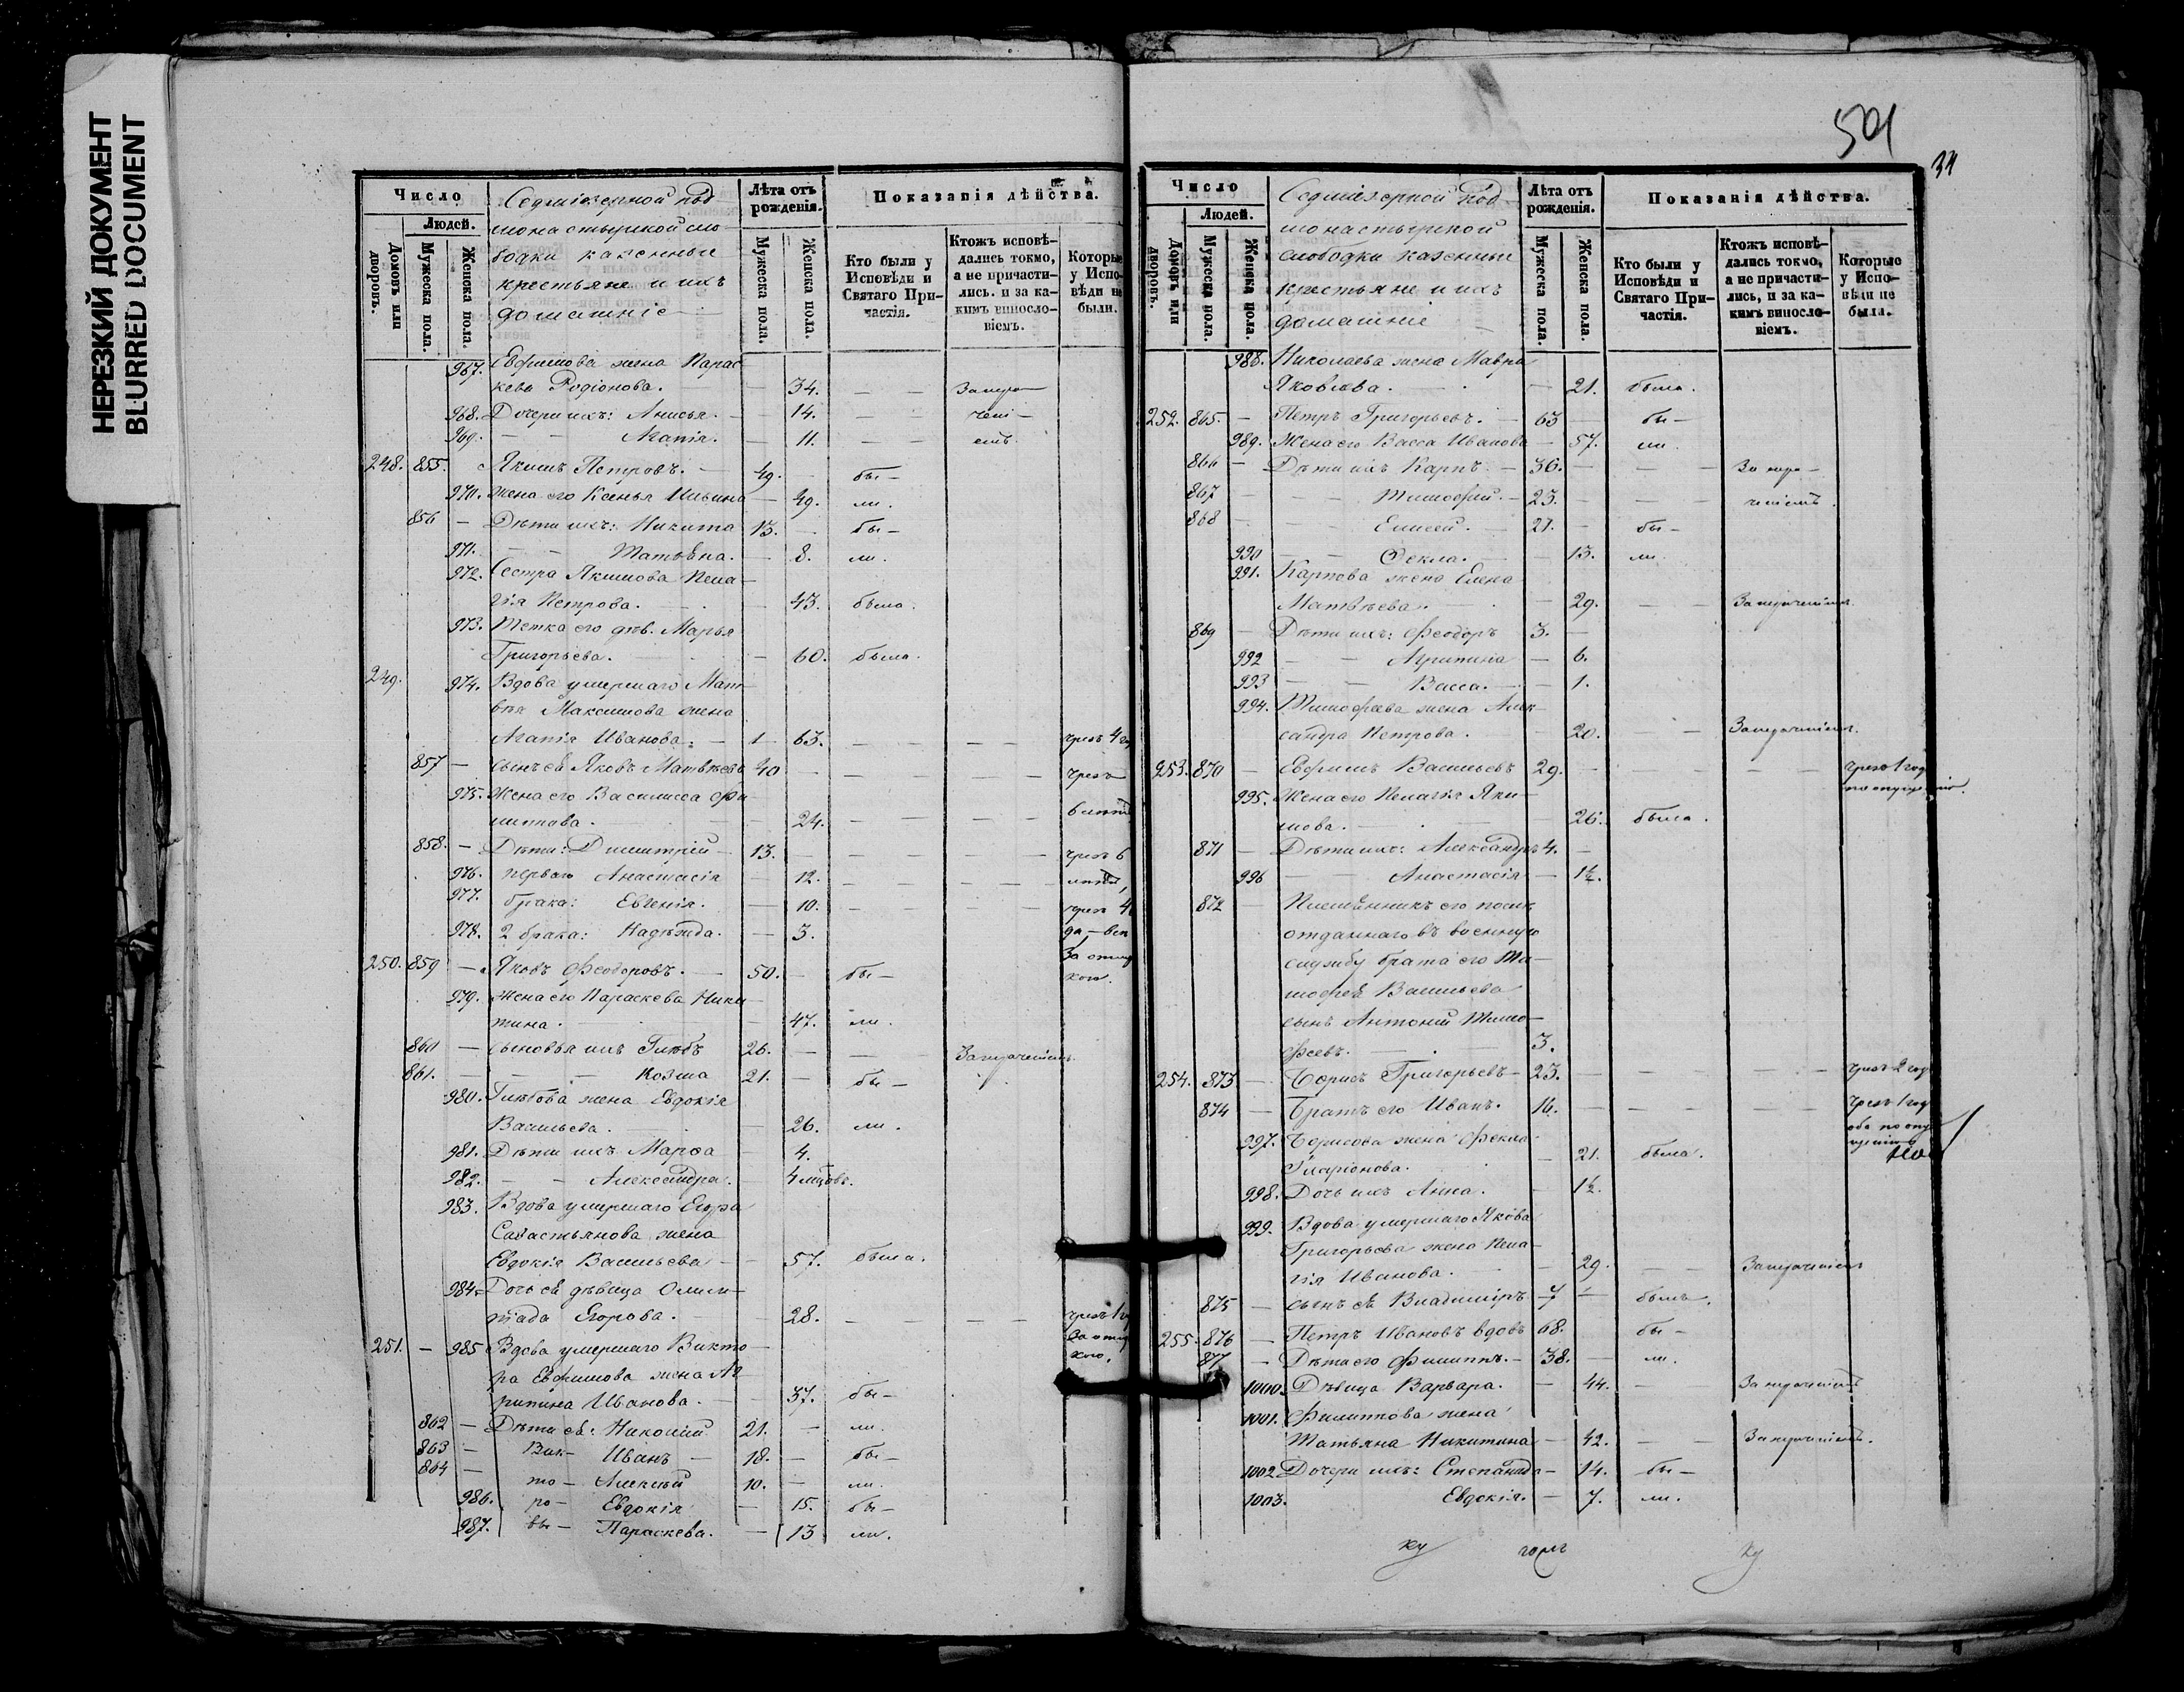 НЕРЕЗКИЙ ДОКУМЕНТ
BLURRED DOCUMENT
Число
Людей.
Домовъ или дворовъ.
Мужеска пола.
Женска пола.
Седміезерной под
монастырской сло
бодки казенные
крестьяне и ихъ
домашніе
Лѣта отъ рожденія.
Мужеска пола.
Женска пола.
Показанія дѣйства.
Кто были у Исповѣди и Святаго Причастія.
Ктожъ исповѣдались токмо, а не причастились. и за какимъ винословіемъ.
Которые у Исповѣди не были.
967. Ефимова жена Парас
кева Родіонова. — 34. — — Запре—
968. Дочери ихъ: Анисья. — 14. — — чені—
969. — — Агапія. — 11. — — емъ.
248. 855. Якимъ Петровъ. — 49. — бы—
970. Жена его Ксенья Ильина — 49. ли.
856 — Дѣти ихъ: Никита 13. — бы—
971. — — Татьяна. — 8. ли.
972. Сестра Якимова Пела—
гія Петрова. — 43. была.
973. Тетка его дѣв. Марья
Григорьева. — 60. была.
249. 974. Вдова умершаго Мат—
вѣя Максимова жена
Агапія Иванова. — 63. — — — — чрезъ 4 го
857 — Сынъ ея Яковъ Матвѣевъ 40 — — — — чрезъ
975. Жена его Василисса Фи
липова. — 24. — — — — 6 лѣтъ
858. — Дѣти: Димитрій — 13. — — — — чрезъ 6
976. перваго Анастасія — 12. — — — — лѣтъ,
977. брака: Евгенія. — 10. — — — — чрезъ 4
978. 2 брака: Надежда. — 3. да — всѣ
За отлуч
250. 859 — Яковъ Феодоровъ. — 50. — бы— кою.
979. Жена его Параскева Ники—
тина. — 47. ли.
860 — Сыновья ихъ Глѣбъ 26. — — Запрещеніемъ.
861. — — — Козма 21. — бы—
980. Глѣбова жена Евдокія
Васильева. — 26. ли.
981. Дѣти ихъ Марѳа — 4.
982. — — Александра. — 4 мѣсяцовъ.
983. Вдова умершаго Егора
Савастьянова жена
Евдокія Васильева — 57. была.
984. Дочь ея дѣвица Олим—
піада Егорова. — 28. — — — — чрезъ 1 го
За отлуч
251. — 985 Вдова умершаго Викто— кою.
ра Евфимова жена Аг
рипина Иванова. — 37. бы—
862 — Дѣти ея: Николай 21. — ли.
863 — Вик— Иванъ — 18. — бы—
864 — то— Алексѣй 10. — ли.
986. ро— Евдокія — 15. бы—
987. вы— Параскева. — 13 ли.
501
34
Число
Людей.
Домовъ или дворовъ.
Мужеска пола.
Женска пола.
Седміезерной под
монастырской
слободки казенные
крестьяне и ихъ
домашніе
Лѣта отъ рожденія.
Мужеска пола.
Женска пола.
Показанія дѣйства.
Кто были у Исповѣди и Святаго Причастія.
Ктожъ исповѣдались токмо, а не причастились, и за какимъ винословіемъ.
Которые у Исповѣди не были.
988. Николаева жена Мавра
Яковлева. — 21. была.
252. 865. — Петръ Григорьевъ. — 63 — бы—
989. Жена его Васса Иванова — 57. ли.
866 — Дѣти ихъ Карпъ — 36. — — — Запре—
867 — — Тимофей. — 23. — — — щеніемъ.
868 — — Елисей. — 21. — бы—
990 — — Ѳекла. — 13. ли.
991. Карпова жена Елена
Матвѣева. — 29. — — Запрещеніемъ.
869 — Дѣти ихъ: Феодоръ 3. —
992 — — Агрипина — 6.
993 — — Васса. — 1.
994. Тимофеева жена Алек—
сандра Петрова. — 20. — — Запрещеніемъ.
253. 870 — Евфимъ Васильевъ 29. — — — — чрезъ 1 год
по опущенію.
995. Жена его Пелагія Яки—
мова. — 26. была.
871 — Дѣти ихъ: Александръ 4. —
996 — — Анастасія — 1½.
872 — Племянникъ его посл
отданнаго въ военную
службу брата его Ти—
мофея Васильева
сынъ Антоній Тимо—
феевъ. — 3.
254. 873 — Борисъ Григорьевъ — 23. — — — — чрезъ 2 год
874 — Братъ его Иванъ. 16. — — — — чрезъ 1 год
оба по опу
997. Борисова жена Фекла щенію
Иларіонова. — 21. была.
998. Дочь ихъ Анна. — 1½.
999. Вдова умершаго Якова
Григорьева жена Пела—
гія Иванова. — 29. — — Запрещеніемъ
875 — Сынъ ея Владиміръ — 7 — былъ.
255. 876 — Петръ Ивановъ вдовъ 68. бы—
877 — Дѣти его Филиппъ. — 38. — ли.
1000. Дѣвица Варвара. — 44. — Запрещеніемъ
1001. Филиппова жена
Татьяна Никитина — 42. — — Запрещеніемъ.
1002 Дочери ихъ: Степанида — 14. бы—
1003. Евдокія. — 7. ли.